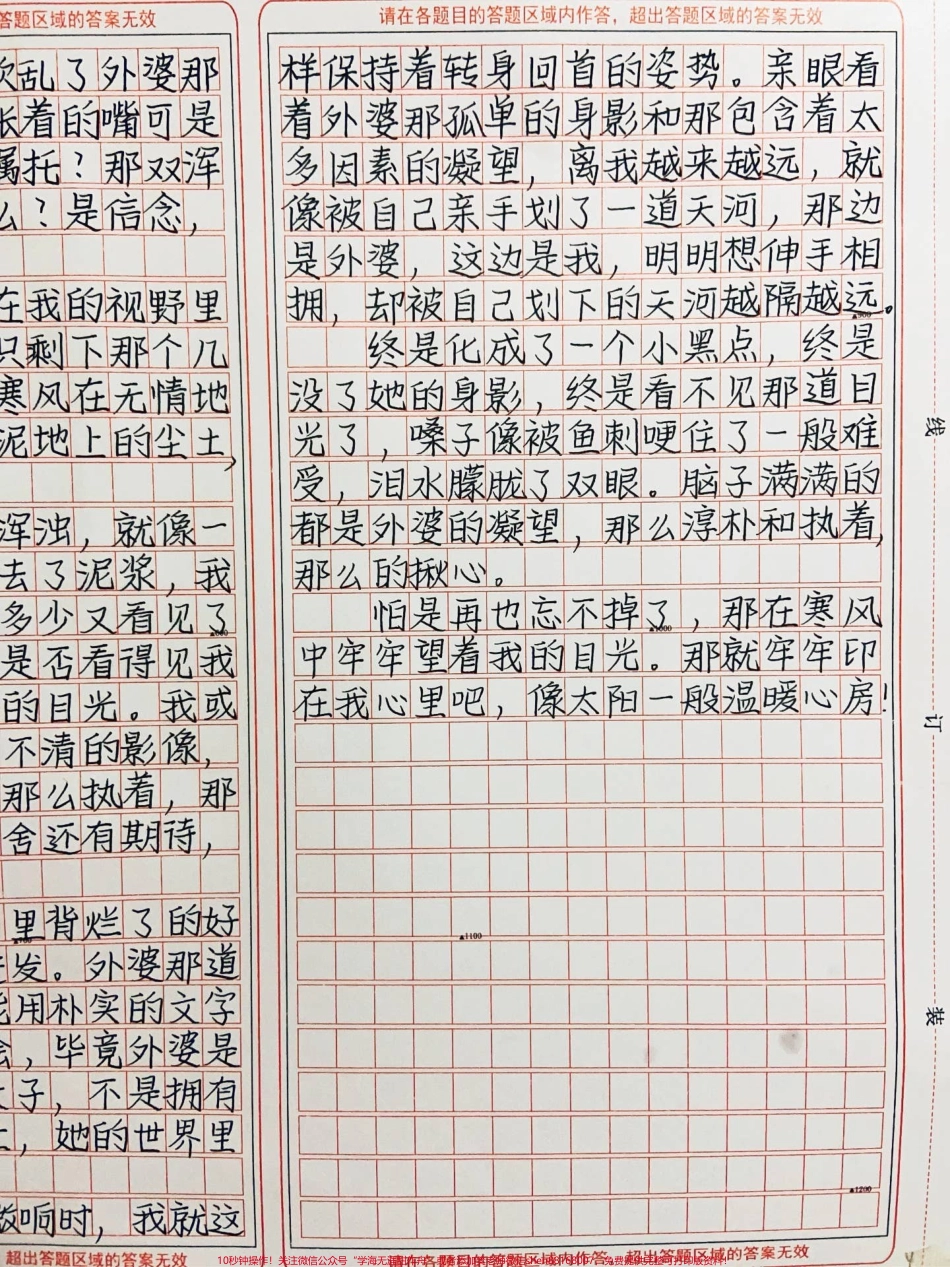 答题区域的答案无效
乱了外婆那
着的嘴可是
嘱托？那双浑
么？是信念，
在我的视野里
只剩下那个几
寒风在无情地
泥地上的尘土，
浑浊，就像一
去了泥浆，我
多少又看见了
是否看得见我
的目光。我或
不清的影像，
那么执着，那
舍还有期待，
里背烂了的好
发。外婆那道
用朴实的文字
，毕竟外婆是
子，不是拥有
，她的世界里
响时，我就这
超出答题区域的答案无效
请在各题目的答题区域内作答，超出答题区域的答案无效
样保持着转身回首的姿势。亲眼看
着外婆那孤单的身影和那包含着太
多因素的凝望，离我越来越远，就
像被自己亲手划了一道天河，那边
是外婆，这边是我，明明想伸手相
拥，却被自己划下的天河越隔越远。
▲900
终是化成了一个小黑点，终是
没了她的身影，终是看不见那道目
光了，嗓子像被鱼刺哽住了一般难
受，泪水朦胧了双眼。脑子满满的
都是外婆的凝望，那么淳朴和执着，
那么的揪心。
怕是再也忘不掉了，那在寒风
▲1000
中牢牢望着我的目光。那就牢牢印
在我心里吧，像太阳一般温暖心房！
▲1100
▲1200
请在各题目的答题区域内作答，超出答题区域的答案无效
线
订
装
10秒钟操作！关注微信公众号“学海无涯